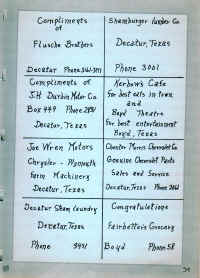 Compliments
of
Flusche Brothers
Decatur Phone 3161-3171
Shamburger Lumber Co.
Decatur, Texas
Phone 3001
Compliments of
J.H. Durbin Motor Co.
Box 449 Phone
Decatur, Texas
Kerbow's Cafe
For best eats in town
and
Boyd Theatre
For best entertainment
Boyd, Texas
Joe Wren Motors
Chrysler - Plymouth
Farm Machinery
Decatur, Texas
Chester Morris Chevrolet Co
Genuine Chevrolet Parts
Sales and Service
Decatur, Texas Phone
Decatur Steam Laundry
Decatur, Texas
Phone 3431
Congratulations
Grocery
Boyd Phone 58